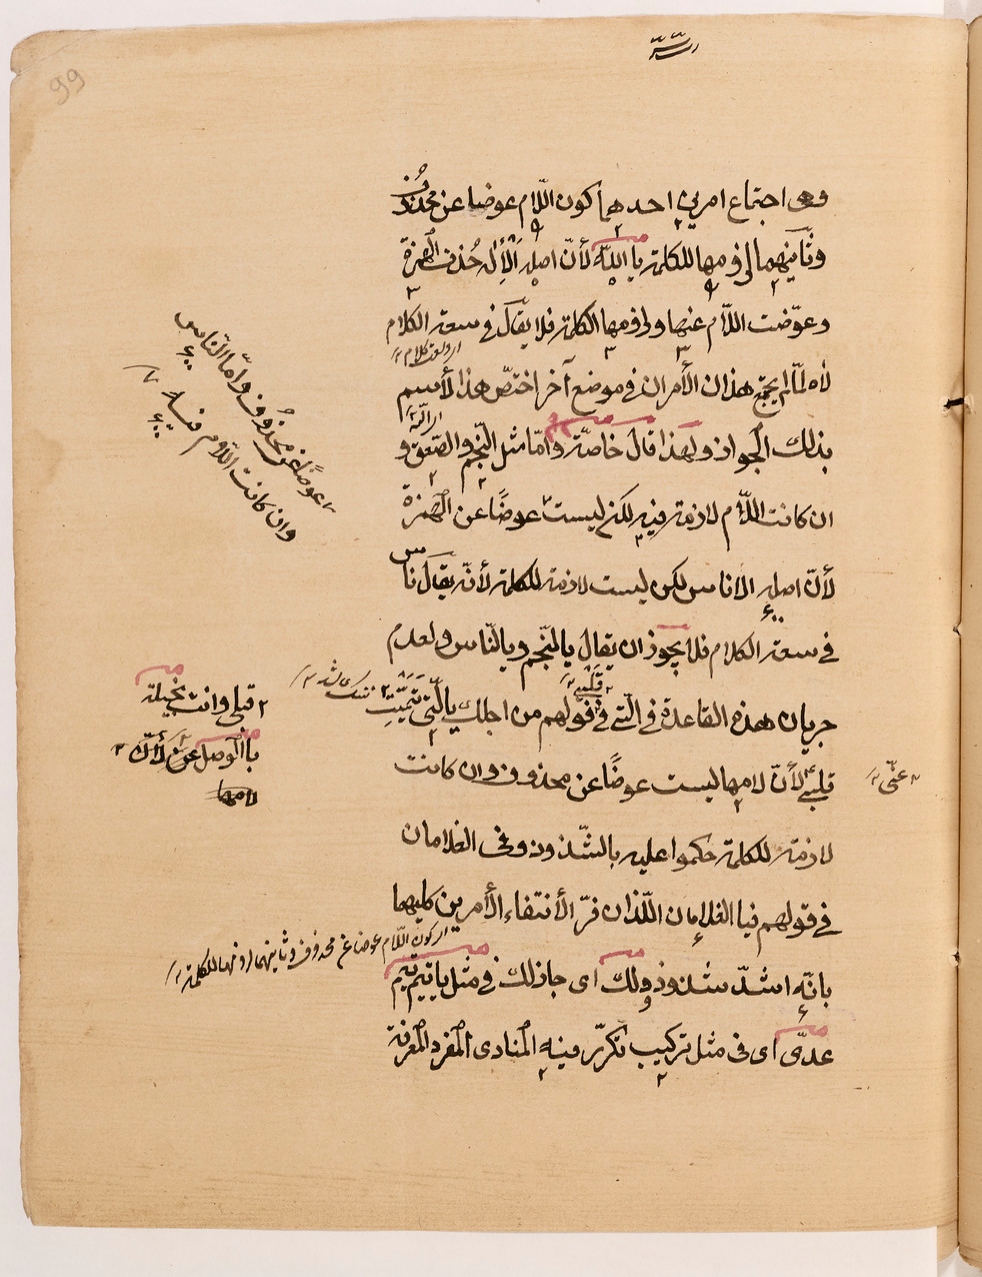 وهى اجتماع امرين احدهما كون اللّام عوضا عن محذوف
وثانيهما لزومها للكلمة يا اللّه لأنّ اصله الأله حُذفت الهمزة
وعوّضت اللّام عنها ولزومها الكلمة فلا يقال فى سعة الكلام
لاه لمّا لم يجتمع هذان الأمران فى موضع آخر اختصّ هذا الأسم
بذلك الجواز ولهذا قال خاصّة وامّا مثل النّجم والصّعق و
ان كانت اللّام لازمة فيه لكن ليست عوضًا عن الهمزة
لأنّ اصله الاناس لكن ليست لازمة للكلمة لأنّه يقال ناس
فى سعة الكلام فلا يجوز ان يقال يا لنّجم ويا لنّاس ولعدم
جريان هذه القاعدة فى الّتى فى قولهم من اجلك يا لّتى تيّمتِ
قلبى لأنّ لامها ليست عوضًا عن محذوف وان كانت
لازمة للكلمة حكموا عليه بالشّذوذ وفى الغلامان
فى قولهم فيا الغلامان اللّذان فرّا لأنتفاء الأمرين كليهما
بانّه اشدّ شذوذ ولك اى جاز لك فى مثل يا تيم تيم
عدىّ اى فى مثل تركيب تكرّر فيه المنادى المفرد المعرفة
وامّا النّاس
عوضًا عن محذوف
وان كانت اللّام فيه
قبلى وانت بخيلة
با الوصل عن لأنّ
لامها
عنّى
اى كون اللّام عوضا عن محذوف وثانيهما لزومها للكلمة